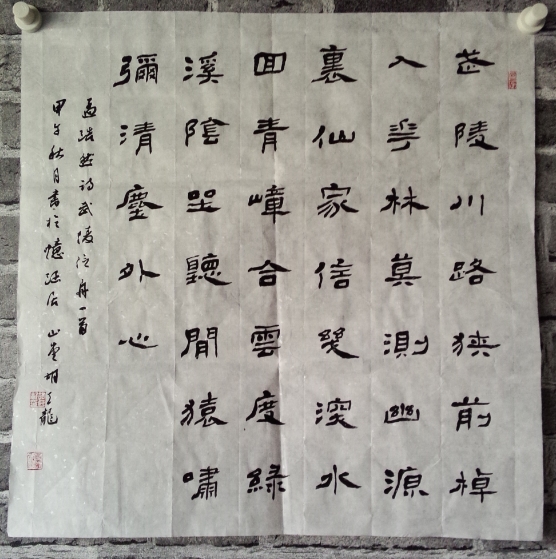 武陵川路狹前棹
入華林莫測幽源
裏仙家信幾深水
回青嶂合雲度綠
溪陰坐聽閒猿嘯
彌清塵外心
孟浩然诗武陵泛舟一首
甲午秋月書於憶